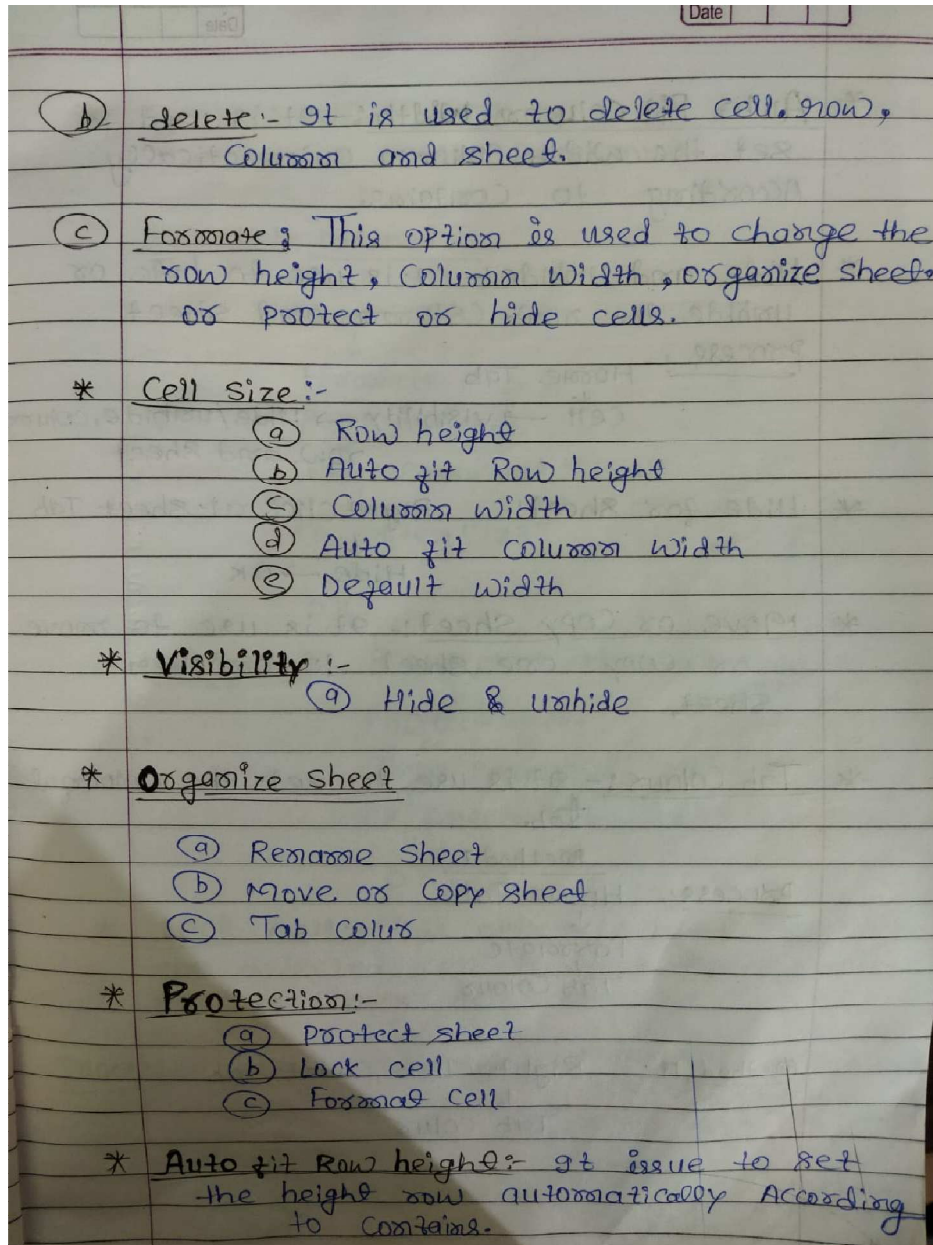 Date
(b) delete:- It is used to delete cell. row,
Column and sheet.
(c) Formate: This option is used to change the
row height, Column width, organize sheet.
or protect or hide cells.
* Cell Size:-
(a) Row height
(b) Auto fit Row height
(c) Column width
(d) Auto fit column width
(e) Default width
* Visibility:-
(a) Hide & unhide
* Organize Sheet
(a) Rename Sheet
(b) Move or Copy sheet
(c) Tab Colur
* Protection:-
(a) Protect sheet
(b) Lock cell
(c) Format Cell
* Auto fit Row height:- It issue to set
the height row automatically According
to Contains.